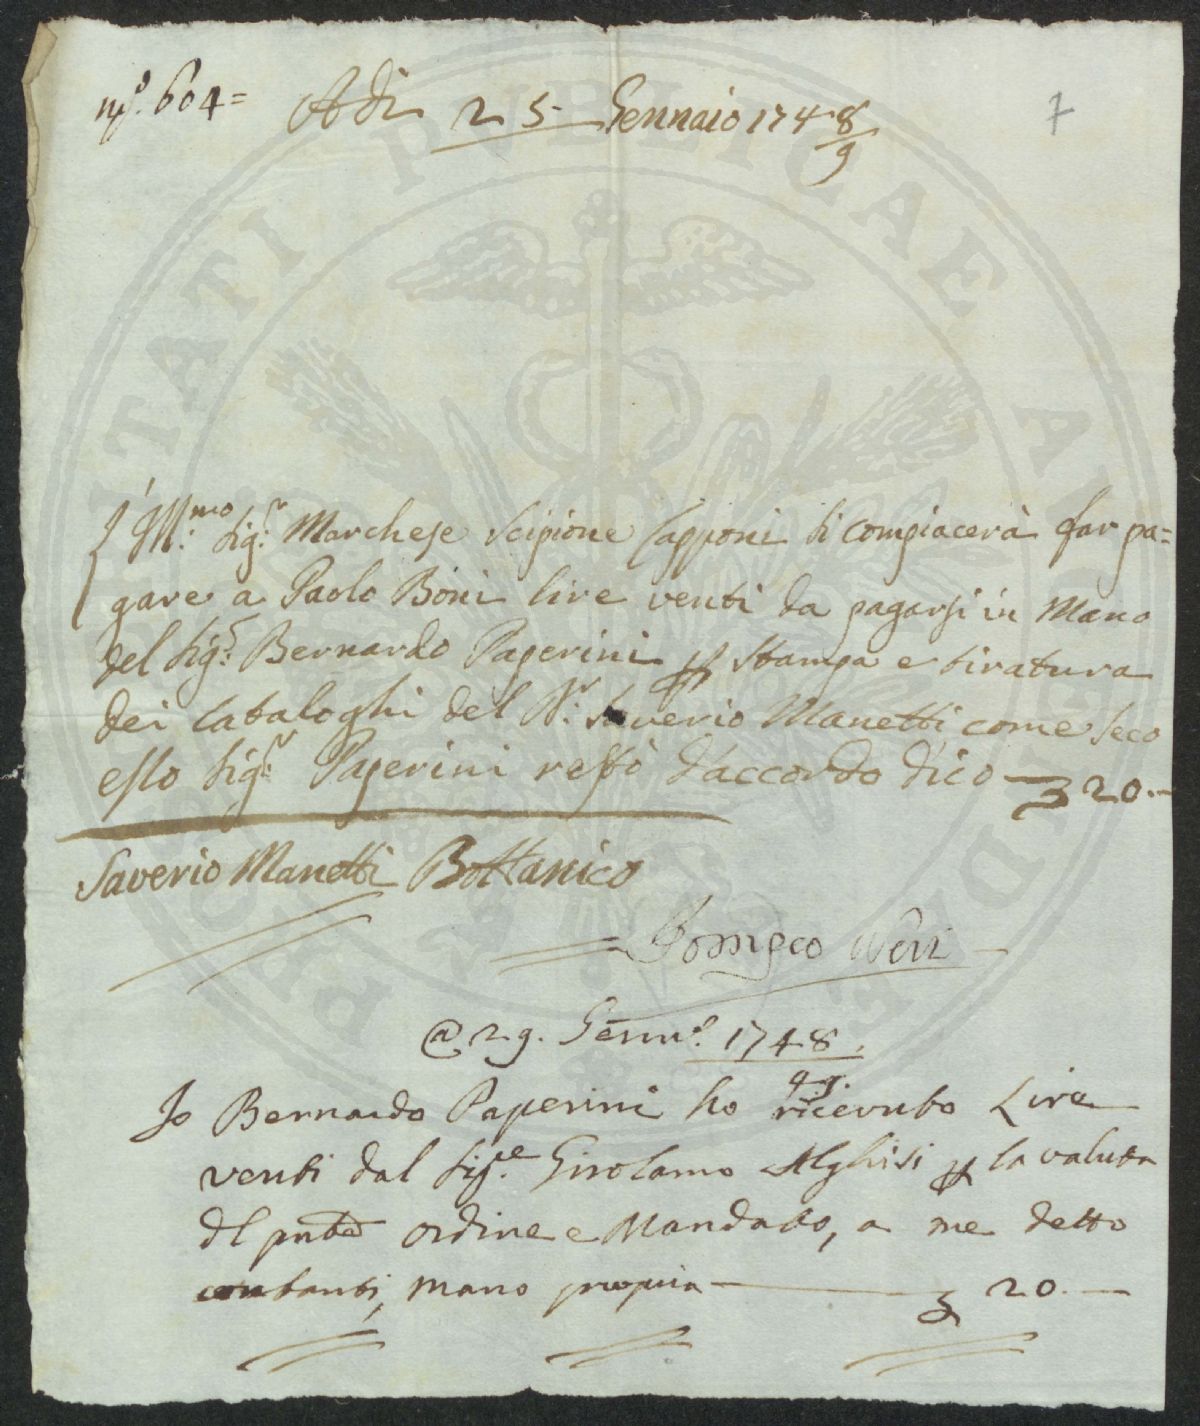 N.o 604= Adi 25 Gennaio 1748/9
7
L'Ill:mo Sig:r Marchese Scipione Capponi si compiacerà far pa=
gare a Paolo Boni lire venti da pagarsi in Mano
del Sig:r Bernardo Paperini p Stampa e tiratura
dei Cataloghi del D:r Saverio Manetti come seco
esso Sig:r Paperini restò d'accordo dico £ 20.—
Saverio Manetti Bottanico
@ 29. Genn.o 1748/9.
Io Bernardo Paperini ho ricevuto Lire
venti dal Sig.e Girolamo Alghisi p la valuta
dl pnte ordine e Mandato, a me detto
contanti, mano propria — £ 20.—